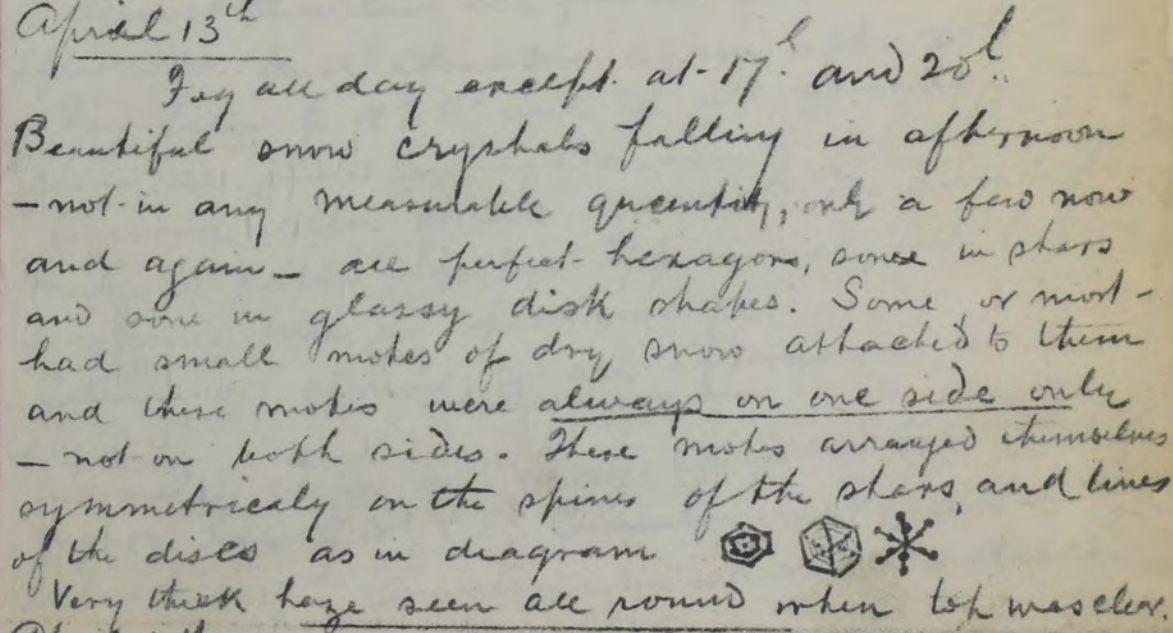 April 13th
Fog all day except at 17h and 20h.
Beautiful snow crystals falling in afternoon
- not in any measurable quantity, only a few now
and again - all perfect hexagons, some in stars
and some in glassy disk shapes. Some, or most -
had small motes of dry snow attached to them
and these motes were always on one side only
- not on both sides. These motes arranged themselves
symmetricaly on the spines of the stars, and lines
of the discs as in diagram
Very thick haze seen all round when top was clear